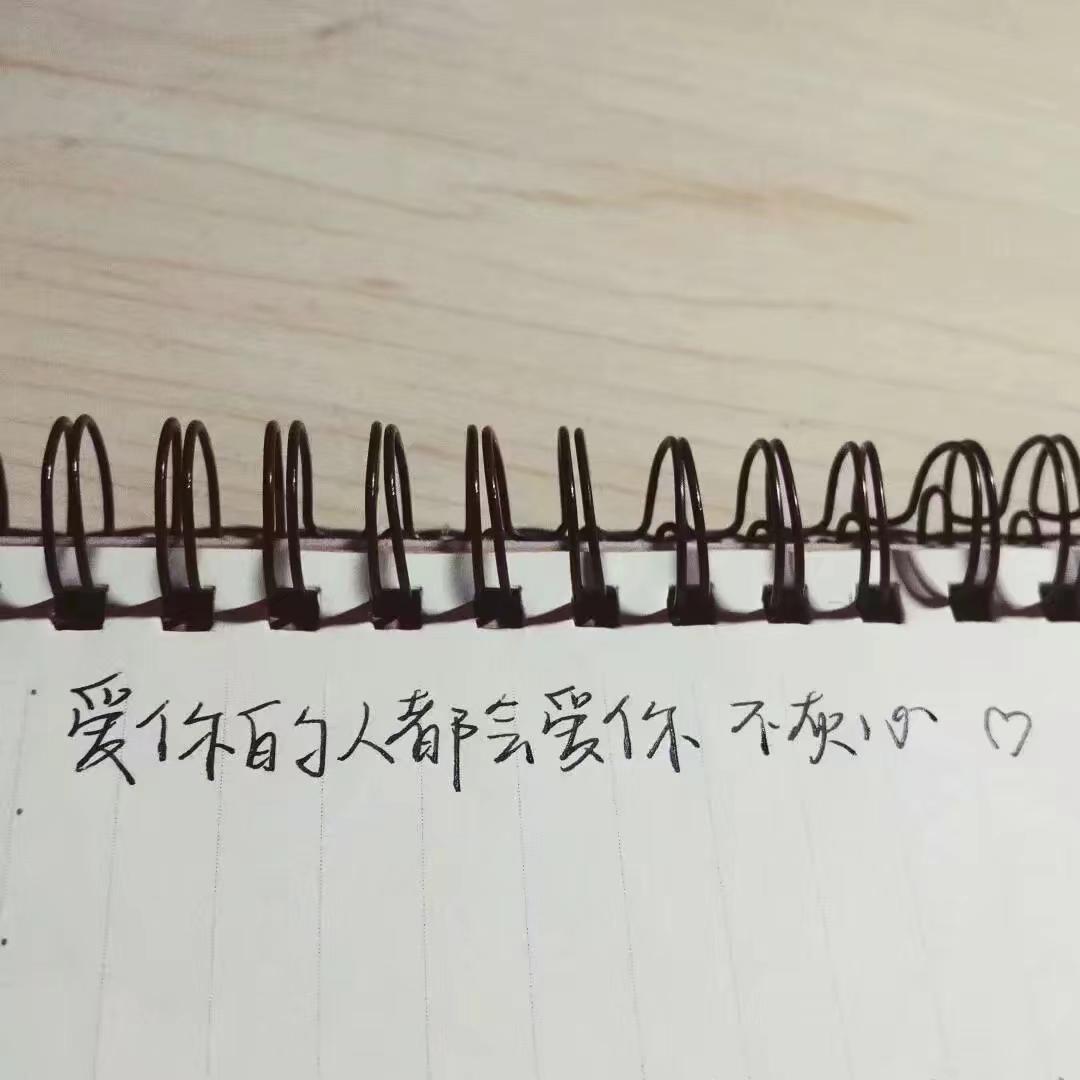 爱你的人都会爱你 不灰心 ♡